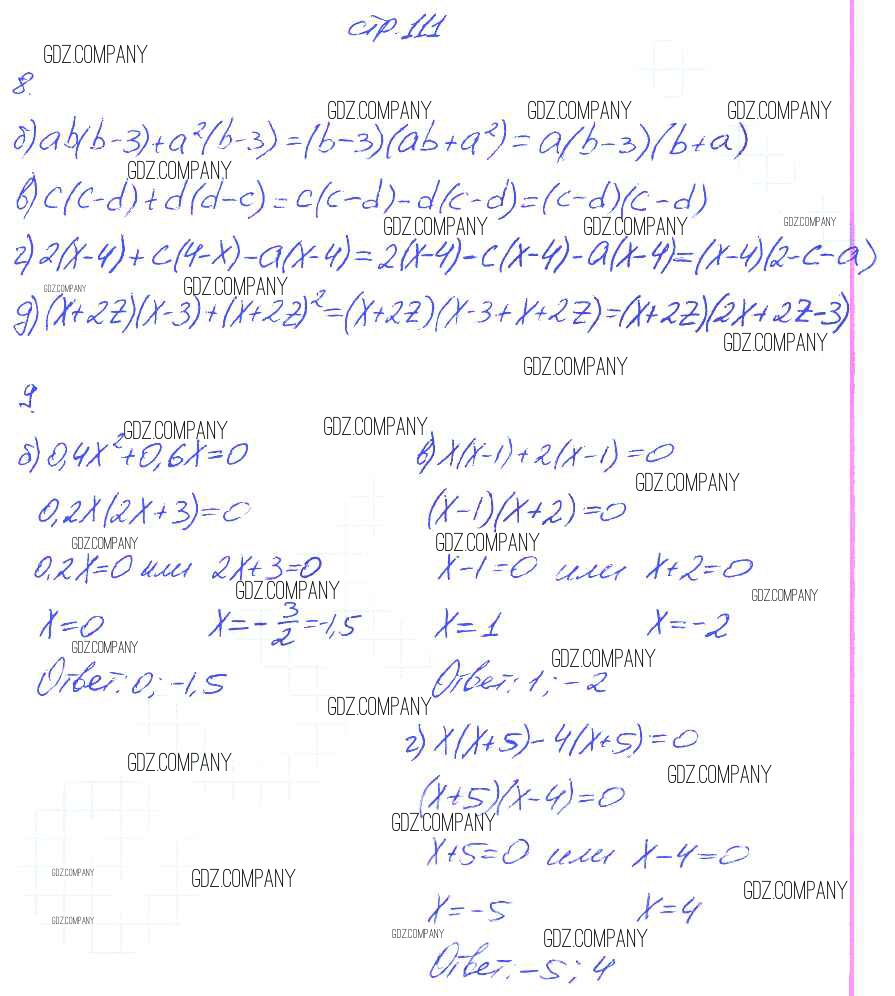 стр. 111
GDZ.COMPANY
8.
GDZ.COMPANY GDZ.COMPANY GDZ.COMPANY
б) ab(b-3)+a²(b-3)=(b-3)(ab+a²)=a(b-3)(b+a)
GDZ.COMPANY
в) c(c-d)+d(d-c)=c(c-d)-d(c-d)=(c-d)(c-d)
GDZ.COMPANY GDZ.COMPANY GDZ.COMPANY
г) 2(x-4)+c(4-x)-a(x-4)=2(x-4)-c(x-4)-a(x-4)=(x-4)(2-c-a)
GDZ.COMPANY GDZ.COMPANY
д) (x+2z)(x-3)+(x+2z)²=(x+2z)(x-3+x+2z)=(x+2z)(2x+2z-3)
GDZ.COMPANY
GDZ.COMPANY
9
GDZ.COMPANY GDZ.COMPANY
б) 0,4x²+0,6x=0
0,2x(2x+3)=0
GDZ.COMPANY
0,2x=0 или 2x+3=0
GDZ.COMPANY
x=0 x=-3/2=-1,5
GDZ.COMPANY
Ответ: 0; -1,5
GDZ.COMPANY
GDZ.COMPANY
GDZ.COMPANY
GDZ.COMPANY
GDZ.COMPANY
в) x(x-1)+2(x-1)=0
GDZ.COMPANY
(x-1)(x+2)=0
GDZ.COMPANY
x-1=0 или x+2=0
GDZ.COMPANY
x=1 x=-2
GDZ.COMPANY
Ответ: 1; -2
г) x(x+5)-4(x+5)=0
GDZ.COMPANY
(x+5)(x-4)=0
GDZ.COMPANY
x+5=0 или x-4=0
GDZ.COMPANY
x=-5 x=4
GDZ.COMPANY GDZ.COMPANY
Ответ: -5; 4